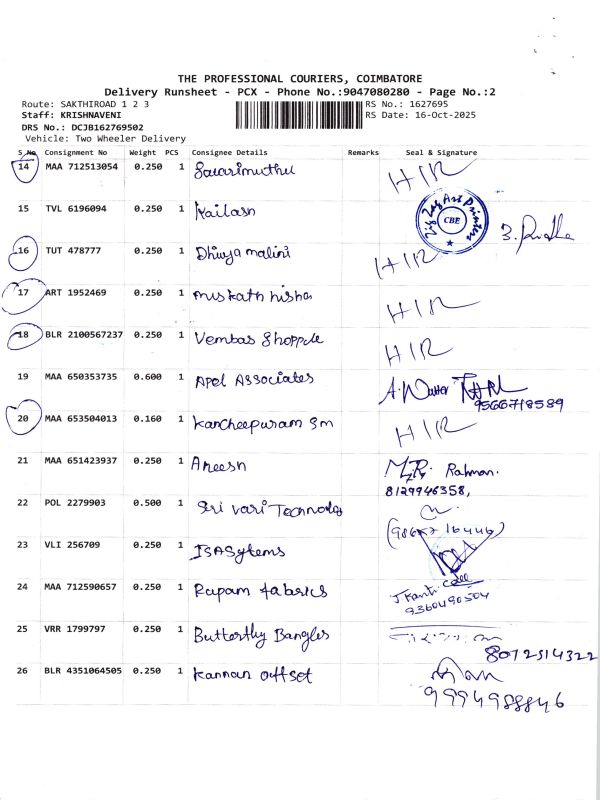 THE PROFESSIONAL COURIERS, COIMBATORE
Delivery Runsheet - PCX - Phone No.:9047080280 - Page No.:2
Route: SAKTHIROAD 1 2 3 RS No.: 1627695
Staff: KRISHNAVENI RS Date: 16-Oct-2025
DRS No.: DCJB162769502
Vehicle: Two Wheeler Delivery
S No Consignment No Weight PCS Consignee Details Remarks Seal & Signature
14 MAA 712513054 0.250 1 Savarimuthu HIR
15 TVL 6196094 0.250 1 Kailash Zig Zag Art Printers CBE
16 TUT 478777 0.250 1 Dhivya malini HIR
17 ART 1952469 0.250 1 Miskath nisha HIR
18 BLR 2100567237 0.250 1 Vembas Shoppee HIR
19 MAA 650353735 0.600 1 Apel Associates
9566718589
20 MAA 653504013 0.160 1 Kancheepuram Sm HIR
21 MAA 651423937 0.250 1 Aneesh M.R. Rahman.
8129946358,
22 POL 2279903 0.500 1 Sri Vari Technology
23 VLI 256709 0.250 1 ISASytems
24 MAA 712590657 0.250 1 Rupam fabrics J Kanti
9360490504
25 VRR 1799797 0.250 1 Butterfly Bangles
8072514322
26 BLR 4351064505 0.250 1 Kannan offset
9994988846